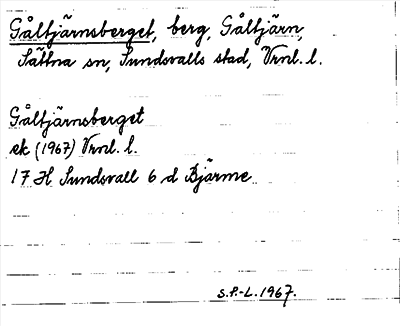 Gåltjärnsberget, berg, Gåltjärn,
Sättna sn, Sundsvalls stad, Vrnl. l.
Gåltjärnsberget
ek (1967) Vrnl. l.
17 H Sundsvall 6 d Bjärme
S.P.-L. 1967.